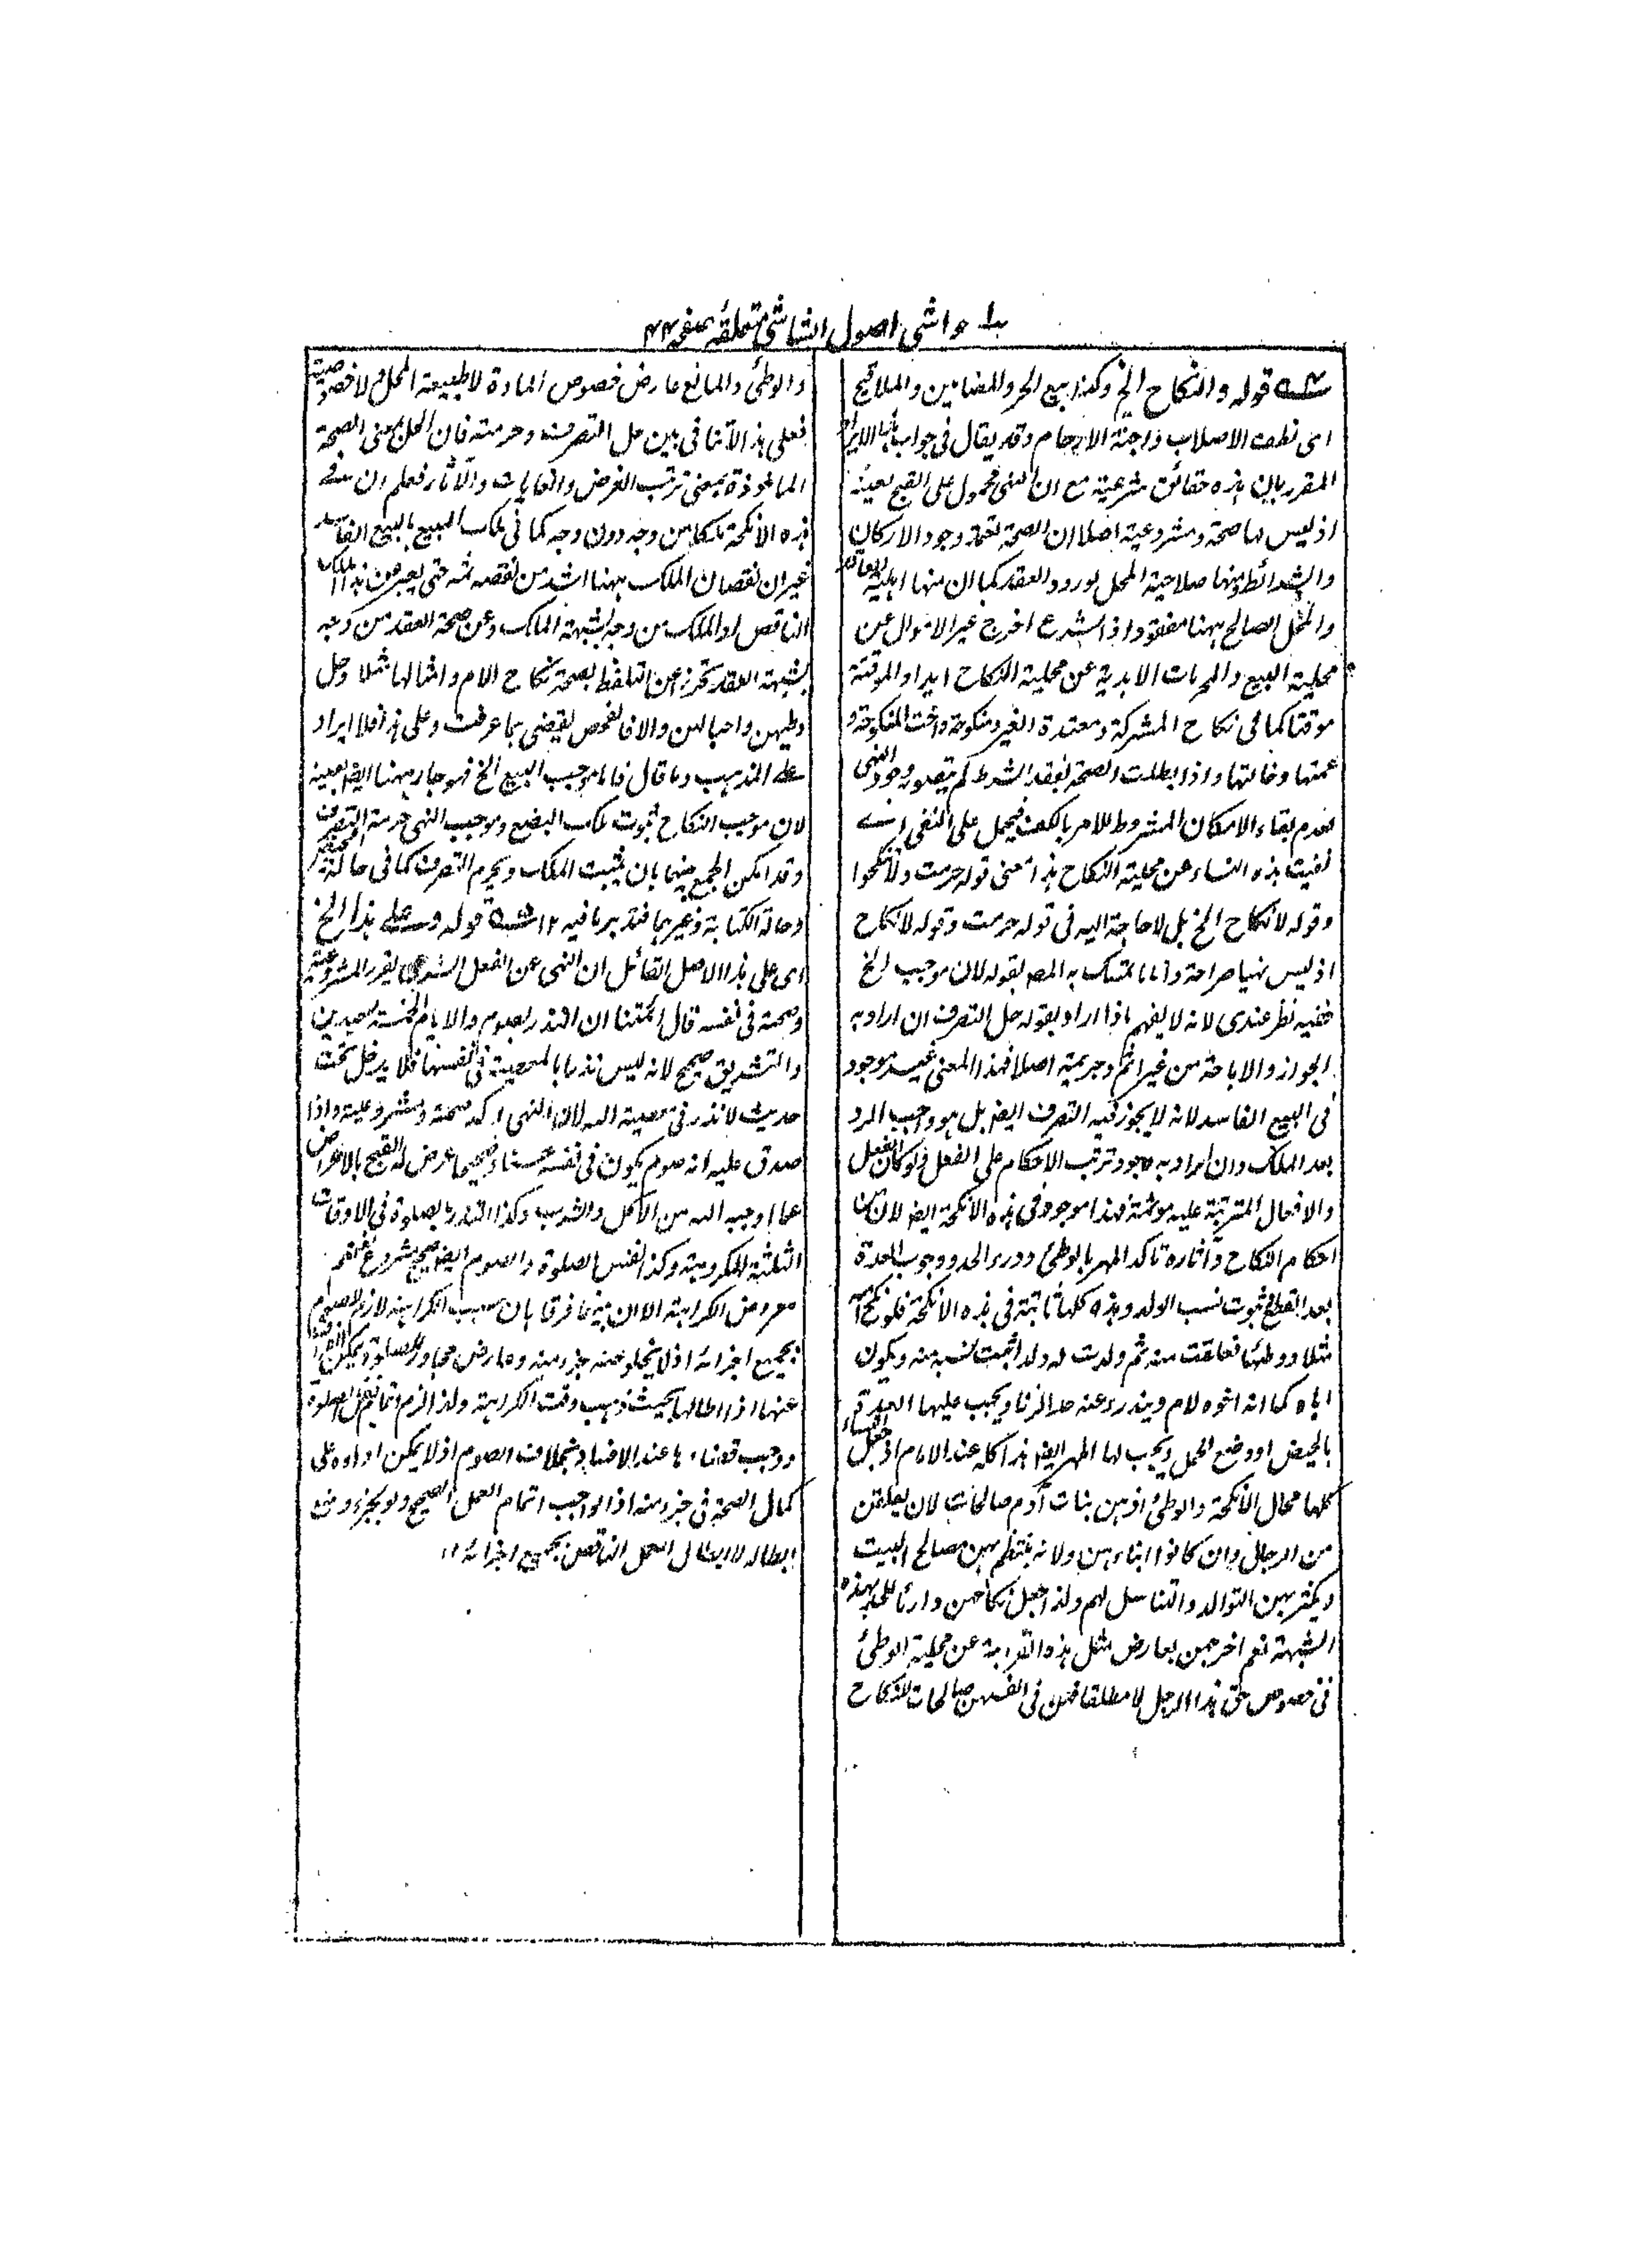 حواشی اصول الشاشی متعلقہ بصفحہ ۴۴
قوله والنكاح الخ وكذا بيع الحر والمضامين والملاقيح
اى نطف الاصلاب واجنة الارحام وقد يقال فى جواب
المقرر بان هذه حقائق شرعية مع ان النهى محمول على القبح لعينه
اذ ليس لها صحة ومشروعية اصلا ان الصحة تعتمد وجود الاركان
والشرائط ومنها صلاحية المحل لورود العقد كما ان منها اهلية العاقد
والمحل الصالح ههنا مفقود اذ الشرع اخرج غير الاموال عن
محلية البيع والمحرمات الابدية عن محلية النكاح ابدا والموقتة
موقتا كما فى نكاح المشركة ومعتدة الغير ومنكوحته واخت المنكوحة و
عمتها وخالتها واذا بطلت الصحة لفقد الشرط لم يتصور وجود النهى
لعدم بقاء الامكان المشروط للامر بالكف فيحمل على النفى اے
نفيت هذه النساء عن محلية النكاح هذا معنى قوله حرمت ولا تنكحوا
وقوله لا نكاح الخ بل لا حاجة اليه فى قوله حرمت وقوله لا نكاح
اذ ليس نهيا صراحة واما ما تمسك به المصـ بقوله لان موجب الخ
ففيه نظر عندى لانه لا يفهم ماذا اراد بقوله حل التصرف ان اراد به
الجواز والاباحة من غير اثم وجريمة اصلا فهذا المعنى غير موجود
فى البيع الفاسد لانه لا يجوز فيه التصرف ايضـ بل هو واجب الرد
بعد الملك وان اراد به وجود ترتب الاحكام على الفعل ولو كان الفعل
والافعال المترتبة عليه موثمة فهذا موجود فى هذه الانكحة ايضـ لان من
احكام النكاح وآثاره تاكد المهر بالوطئ ودرء الحد ووجوب العدة
بعد القطع وثبوت نسب الولد وهذه كلها ثابتة فى هذه الانكحة فلو نكح امه
مثلا ووطئها فعلقت منه ثم ولدت له ولدا ثبت نسبه منه ويكون
اباه كما انه اخوه لام ويندرء عنه حد الزنا ويجب عليها العدة
بالحيض او وضع الحمل ويجب لها المهر ايضـ هذا كله عند الامام اذ جعل النساء
كلها محال الانكحة والوطئ اذ هن بنات آدم صالحات لان يعلقن
من الرجال وان كانوا ابناءهن ولانه ينتظم بهن مصالح البيت
ويكثر بهن التوالد والتناسل لهم ولذا جعل نكاحهن دارئا للحد بهذه
الشبهة نعم اخرجهن بعارض مثل هذه القرابة عن محلية الوطئ
فى خصوص حق هذا الرجل لا مطلقا فهن فى انفسهن صالحات للنكاح
والوطئ والمانع عارض خصوص المادة لا طبيعة المحل ولا خصوصيته
فعلى هذا لا تنافى بين حل التصرف وحرمته فان الحل بمعنى الصحة
الماخوذة بمعنى ترتب الغرض والغايات والآثار فعلم ان فے
هذه الانكحة ملكا من وجه دون وجه كما فى ملك المبيع بالبيع الفاسد
غير ان نقصان الملك ههنا اشد من نقصه ثمه حتى يعبر عن هذا الملك
الناقص او الملك من وجه بشبهة الملك وعن صحة العقد من وجه
بشبهة العقد تحرزا عن التلفظ بصحة نكاح الام وامثالها مثلا وحل
وطيهن واحبالهن والا فالفحص يقضى بما عرفت وعلى هذا فلا ايراد
على المذهب وما قال فاما موجب البيع الخ فهو جار ههنا ايضـ بعينه
لان موجب النكاح ثبوت ملك البضع وموجب النهى حرمة التصرف
وقد امكن الجمع بينهما بان يثبت الملك ويحرم التصرف كما فى حالة الحيض
وحالة الكتابة وغيرهما فتدبر ما فيه ١٢ قوله وعلى هذا الخ
اى على هذا الاصل القائل ان النهى عن الفعل الشرعى يقرر المشروعية
وصحته فى نفسه قال ائمتنا ان النذر بصوم والايام الخمسة العيدين
والتشريق صحيح لانه ليس نذرا بالمعصية فى نفسها فلا يدخل تحت
حديث لا نذر فى معصية الله لان النهى اكد صحته ومشروعيته واذا
صدق عليه انه صوم يكون فى نفسه حسنا وصحيحا عرض له القبح بالاعراض
عما اوجبه الله من الاكل والشرب وكذا النذر بالصلوة فى الاوقات
الثلثة المكروهة وكذا نفس الصلوة والصوم ايضـ صحيح مشروع
معروض الكراهة الا ان بينهما فرقا بان سبب الكراهة لازم للصوم
بجميع اجزائه اذ لا يخلو عنه جزء منه وعارض مجاور للصلوة يمكن
عنها اذا اطالها بحيث ذهب وقت الكراهة ولذا لزم اتمام نفل الصلوة
ووجب قضاءها عند الافساد بخلاف الصوم اذ لا يمكن اداءه على
كمال الصحة فى جزء منه اذ الواجب اتمام العمل الصحيح ولو بجزء ومنع
ابطاله لا ابطال العمل الناقص بجميع اجزائه ١٢